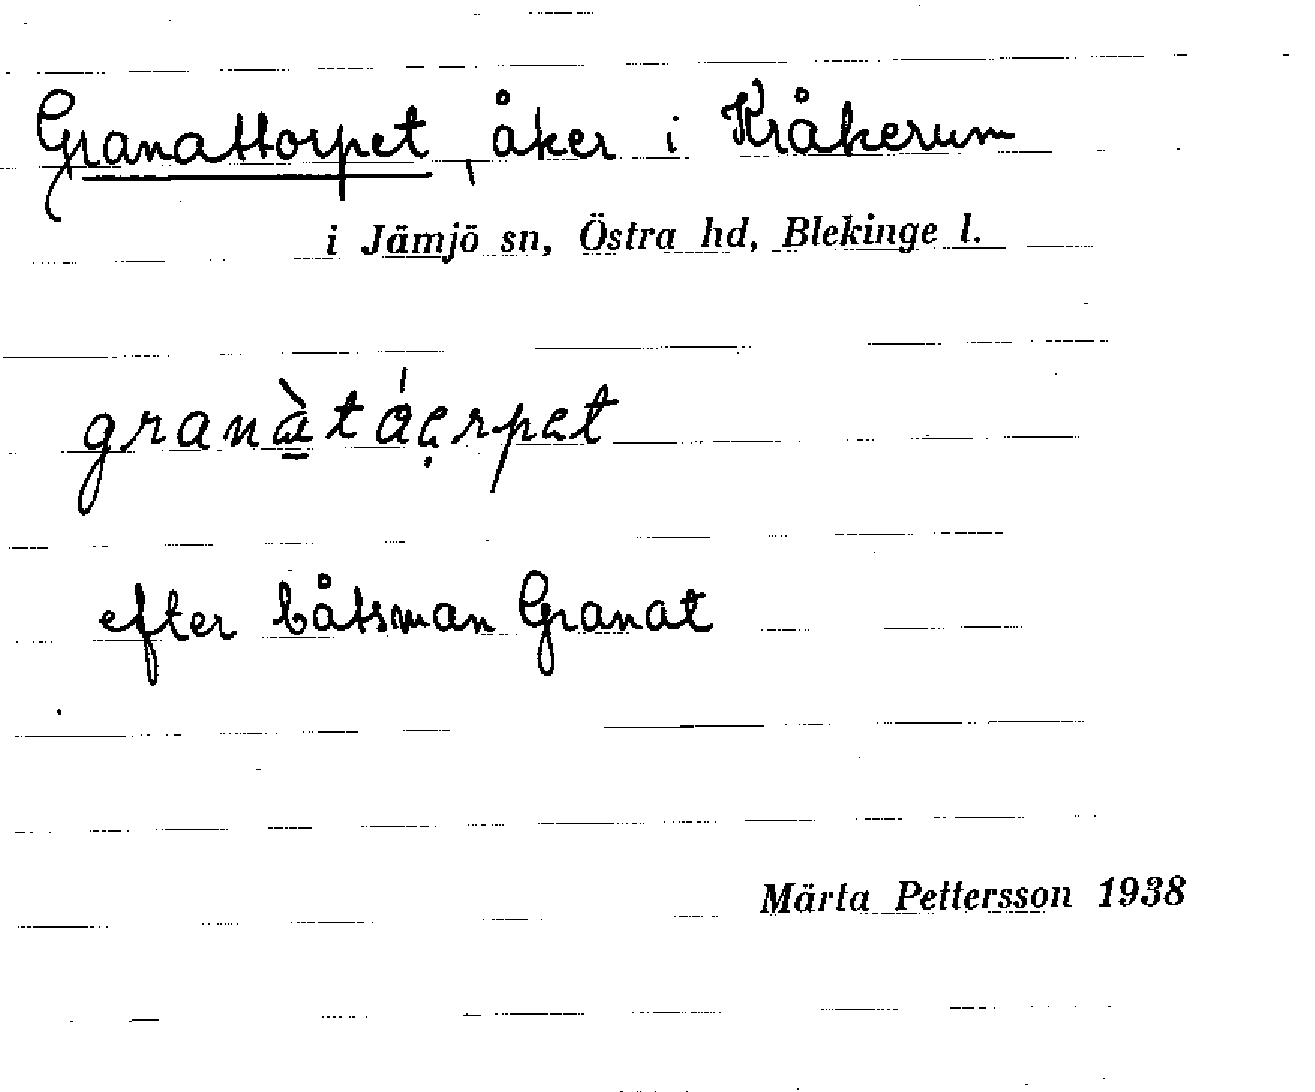 Granattorpet, åker i Kråkerum
i Jämjö sn, Östra hd, Blekinge l.
granàtáerpet
efter båtsman Granat
Märta Pettersson 1938